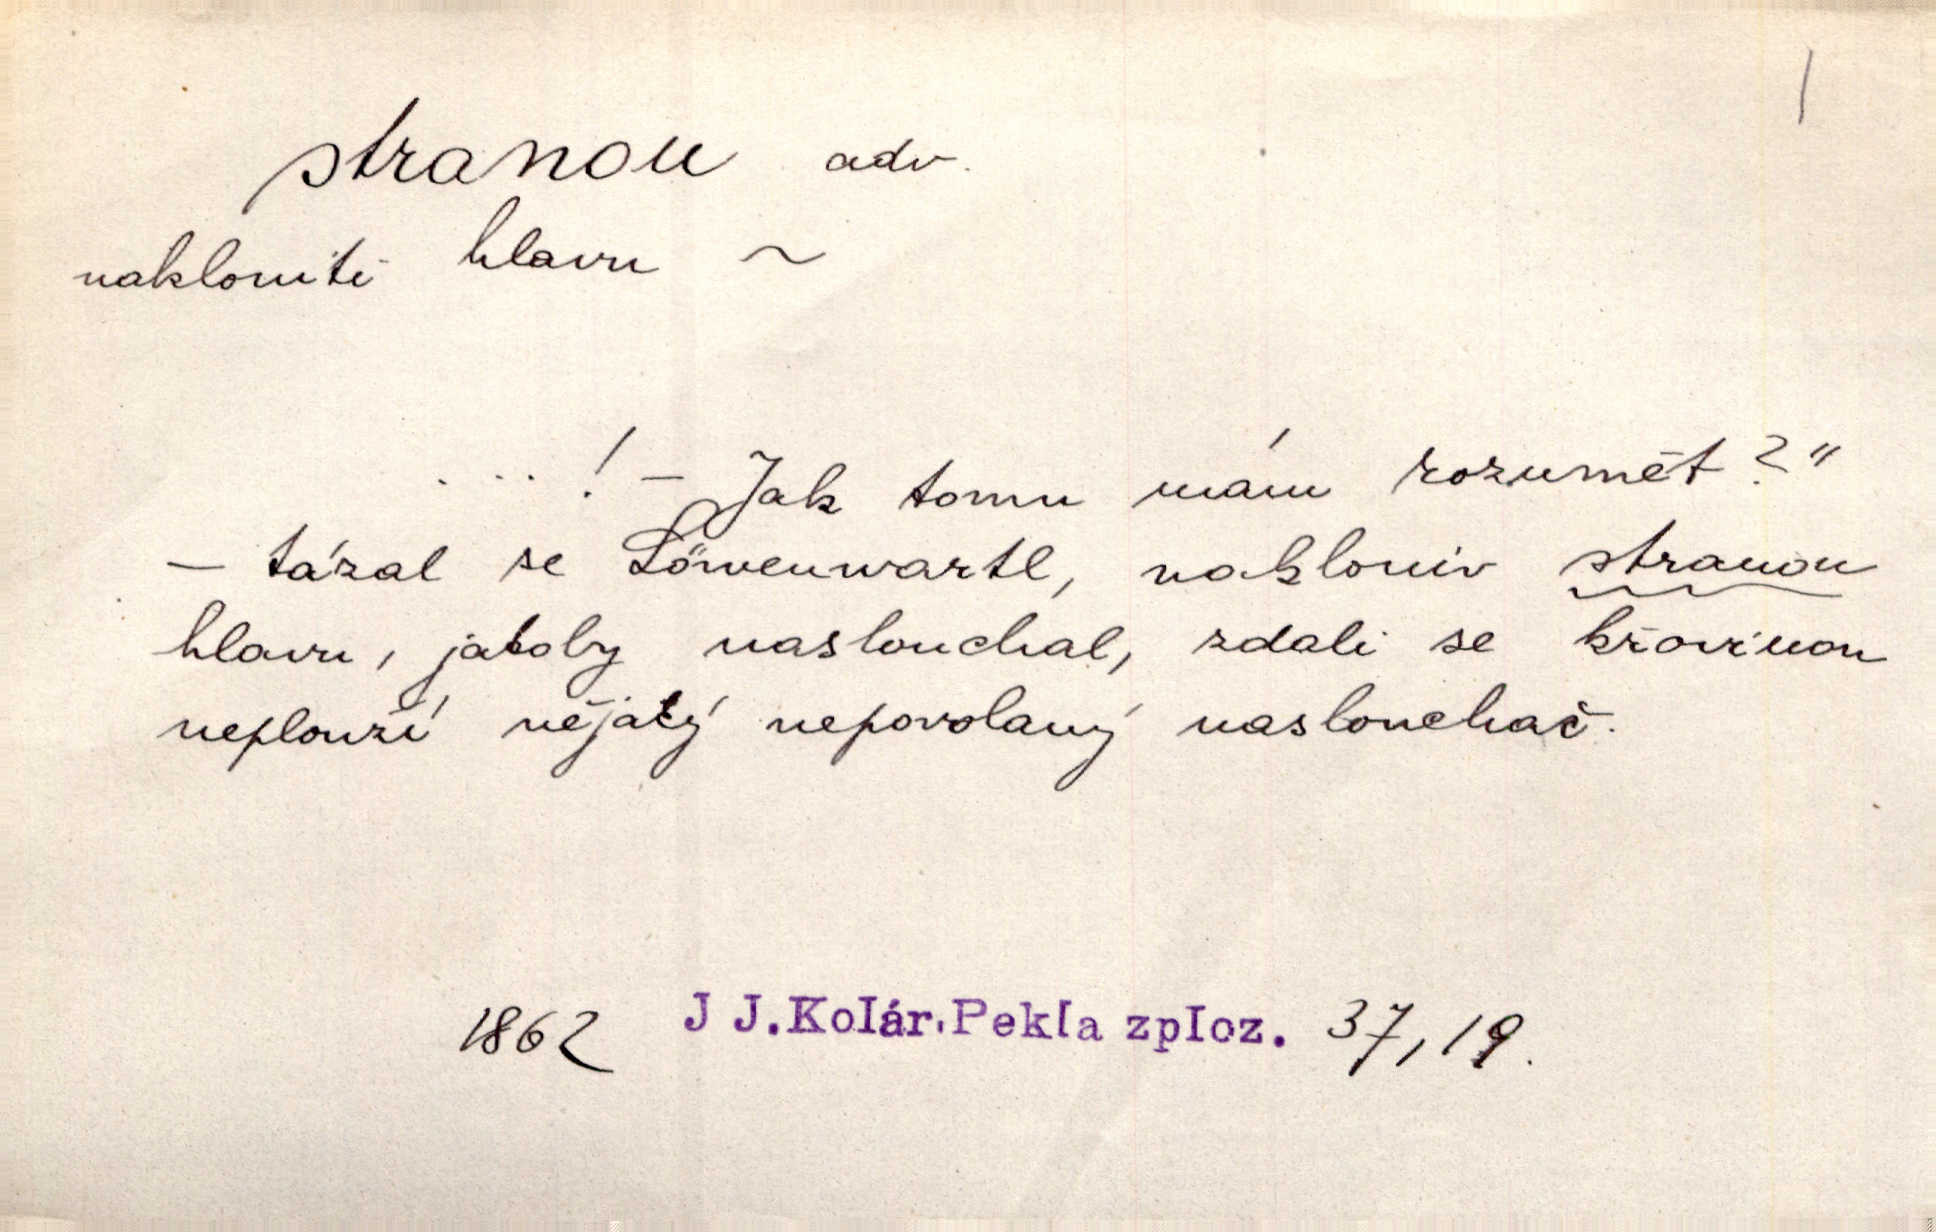 stranou adv.
nakloniti hlavu ~
....! - Jak tomu mám rozumět?"
- tázal se Löwenwartl, nakloniv stranou
hlavu, jakoby naslouchal, zdali se křovinou
neplouží nějaký nepovolaný naslouchač.
1862 J J.Kolár.Pekla zploz. 37,19.